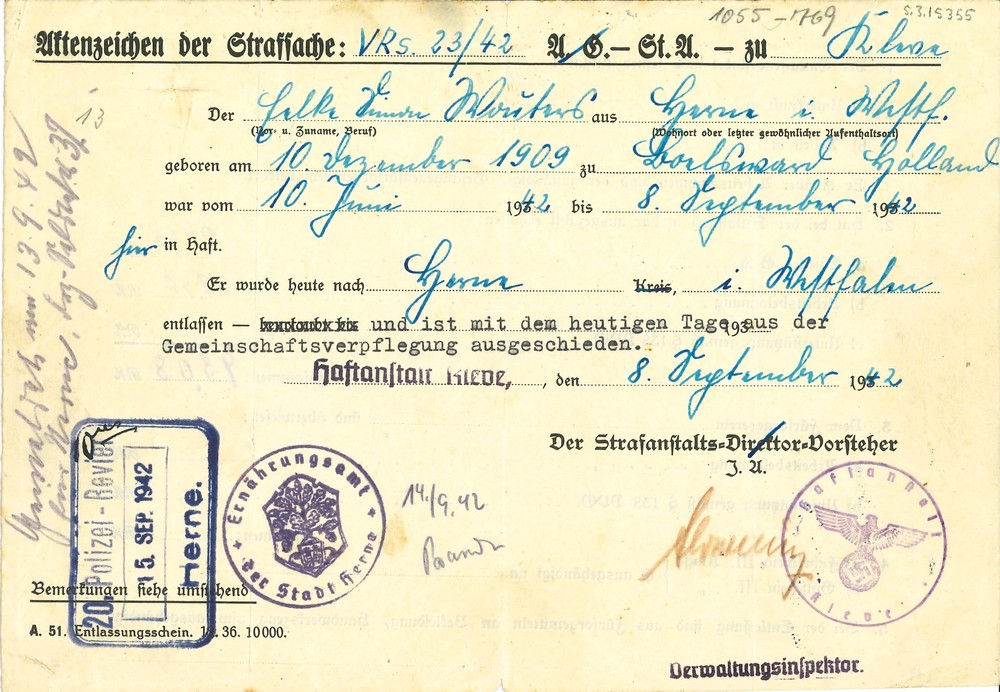 1055-769
S.3.15355
Aktenzeichen der Strafsache: VRs. 23/42 A.G.- St.A. - zu Kleve
13
Der Felke Simon Wouters aus Herne i. Westf.
(Vor- u. Zuname, Beruf) (Wohnort oder letzter gewöhnlicher Aufenthaltsort)
geboren am 10. Dezember 1909 zu Boelsward Holland
war vom 10. Juni 1942 bis 8. September 1942
hier in Haft.
Er wurde heute nach Herne Kreis, i. Westfalen
entlassen — und ist mit dem heutigen Tage 193 aus der
Gemeinschaftsverpflegung ausgeschieden.
Haftanstalt Kleve, , den 8. September 1942
Der Strafanstalts-Direktor-Vorsteher
I. A.
vom 13 9. 42
Herne,
20. Polizei-Revier
15. SEP. 1942
Herne.
Ernährungsamt
der Stadt Herne
14/9. 42
Haftanstalt
Kleve
Bemerkungen siehe umstehend
A. 51. Entlassungsschein. 36. 10000.
Verwaltungsinspektor.